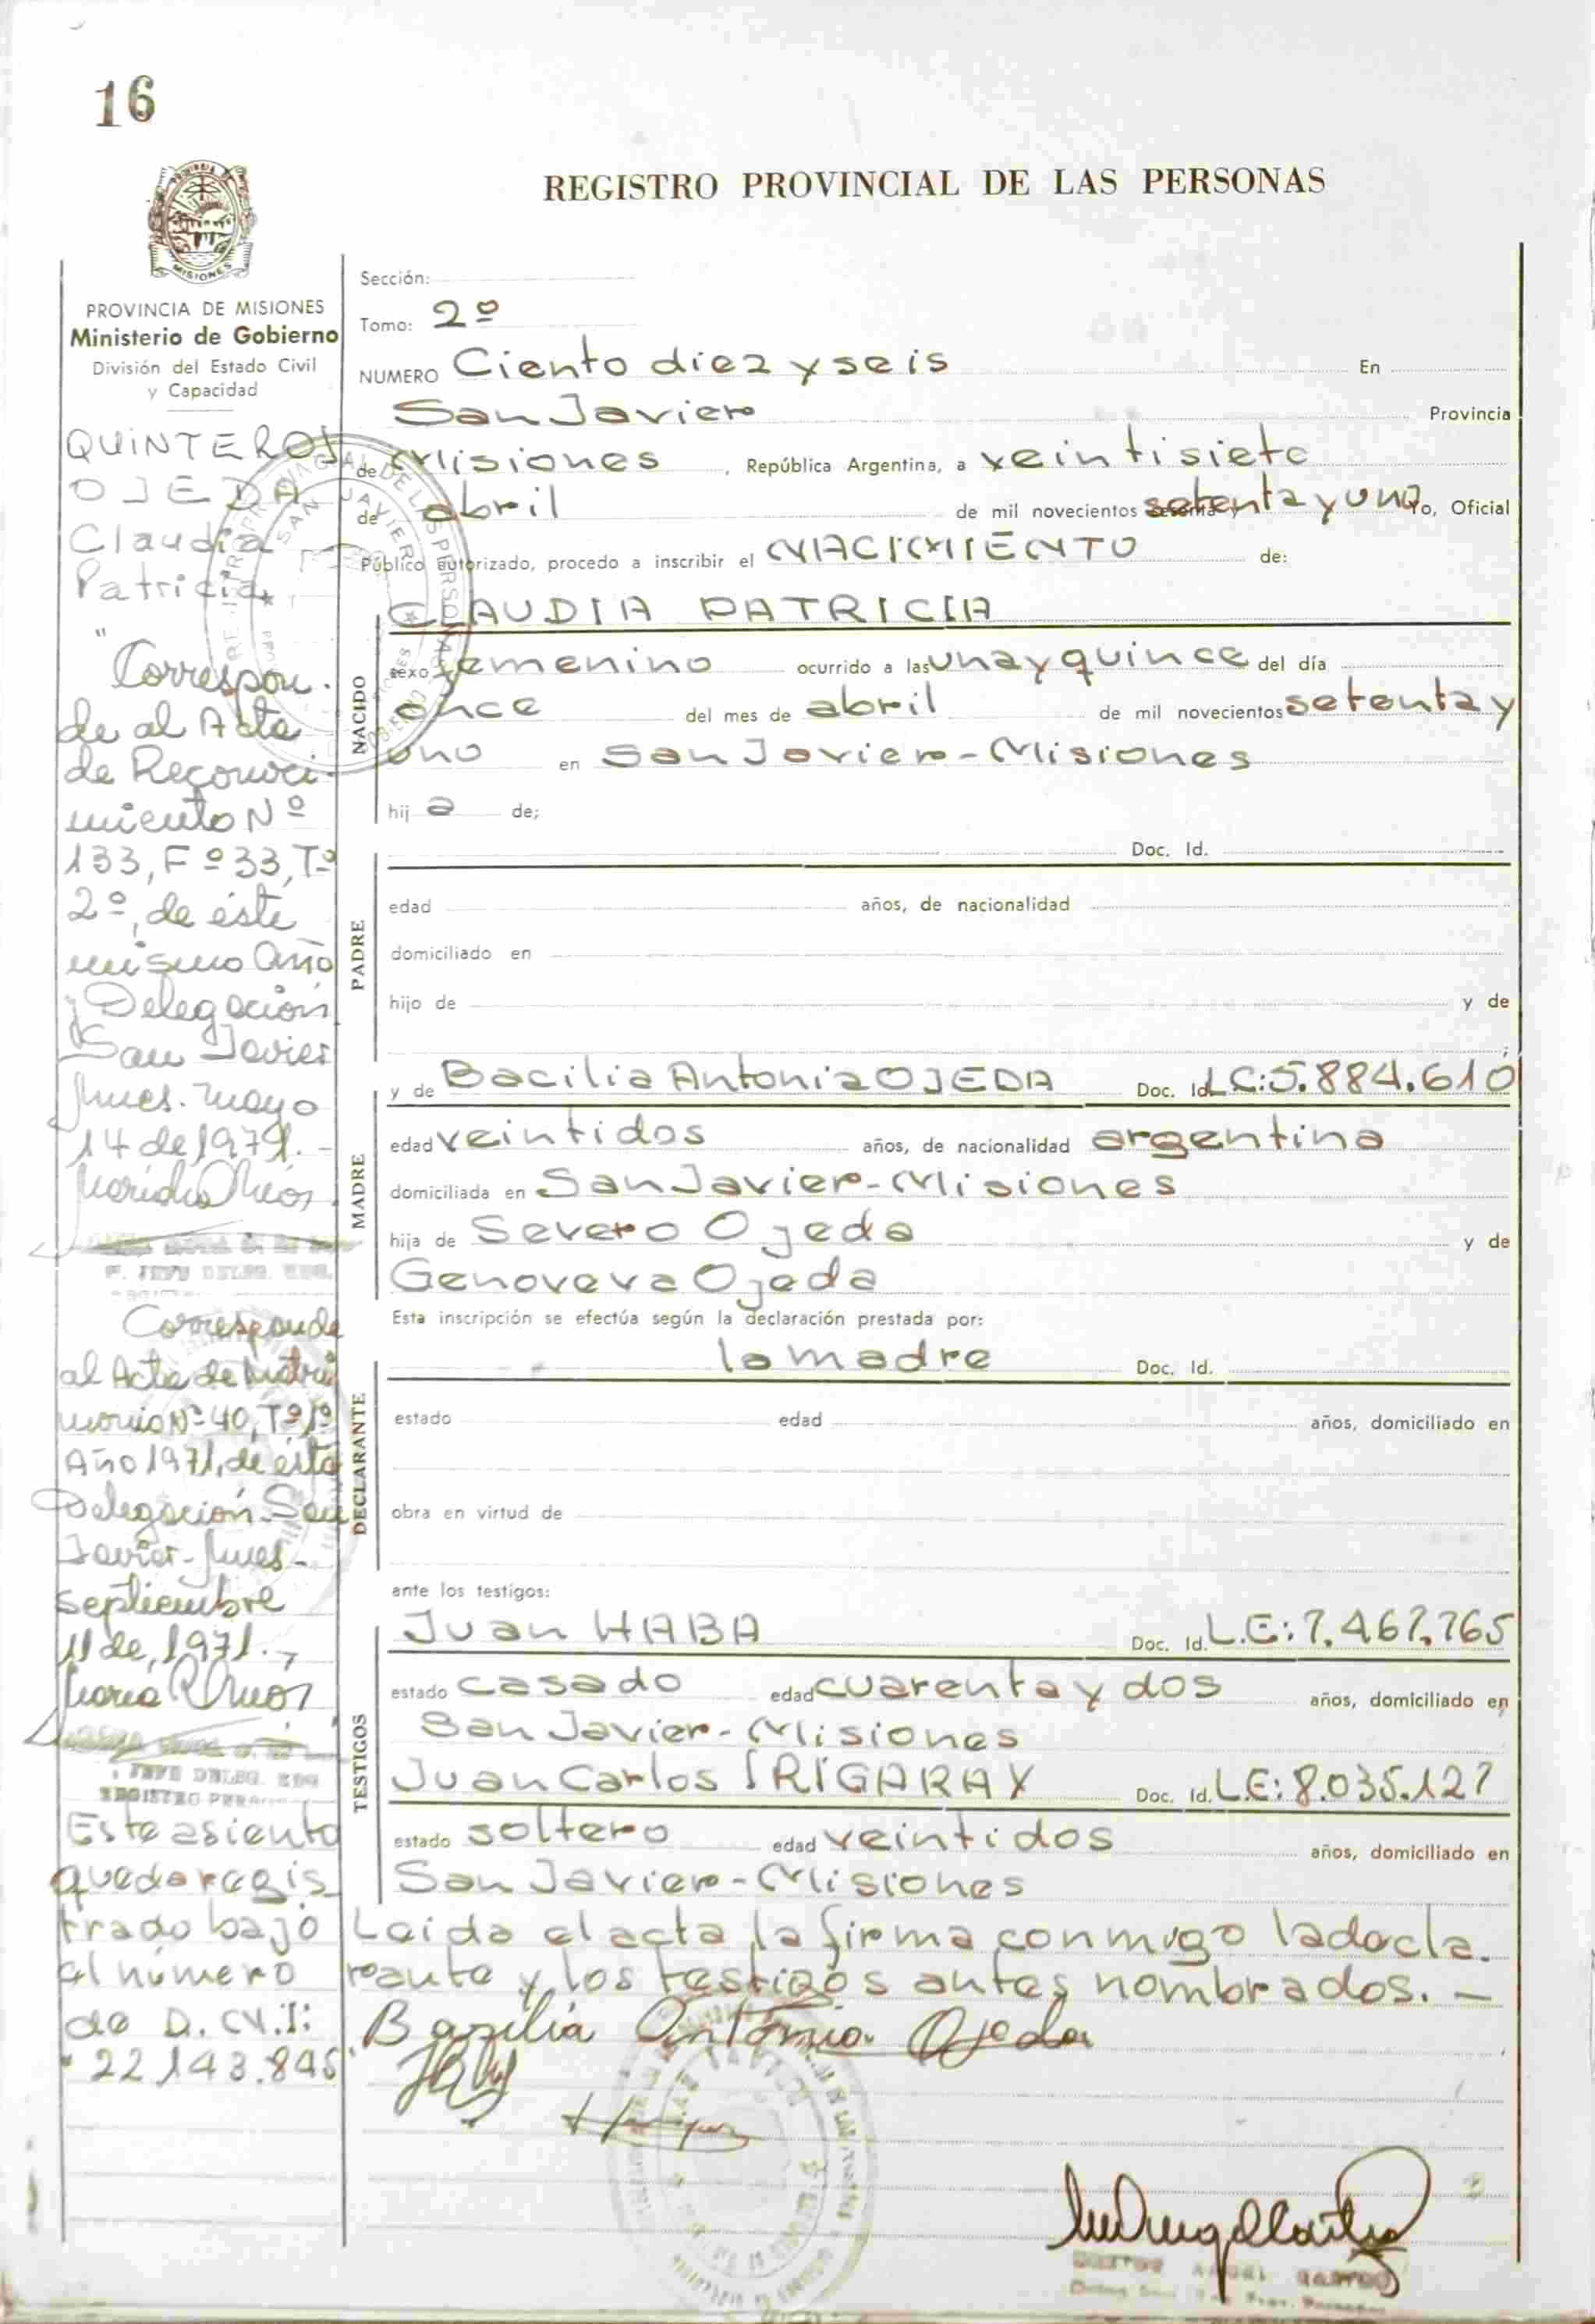 16
REGISTRO PROVINCIAL DE LAS PERSONAS
MISIONES
PROVINCIA DE MISIONES
Ministerio de Gobierno
División del Estado Civil
y Capacidad
QUINTEROS
OJEDA
Claudia
Patricia
"Correspon-
de al Acta
de Reconoci-
miento Nº
133, Fº 33, Tº
2º, de éste
mismo Año
Delegación
San Javier
Mnes. mayo
14 de 1971.-
Corresponde
al Acta de Matri
monio Nº 40, Tº 1º
Año 1971, de esta
Delegación San
Javier-Mnes-
septiembre
11 de, 1971.-
Este asiento
queda regis
trado bajo
el número
de D.N.I:
22.143.845
Sección:
Tomo: 2º
NUMERO Ciento diez y seis En
San Javier Provincia
de Misiones, República Argentina, a veintisiete
de abril de mil novecientos setenta y uno, Oficial
Público autorizado, procedo a inscribir el NACIMIENTO de:
NACIDO
CLAUDIA PATRICIA
sexo femenino ocurrido a las una y quince del día
once del mes de abril de mil novecientos setenta y
uno en San Javier-Misiones
hij a de;
PADRE
Doc. Id.
edad años, de nacionalidad
domiciliado en
hijo de y de
;
MADRE
y de Bacilia Antonia OJEDA Doc. Id. L.C:5.884.610
edad veintidos años, de nacionalidad argentina
domiciliada en San Javier-Misiones
hija de Severo Ojeda y de
Genoveva Ojeda
Esta inscripción se efectúa según la declaración prestada por:
DECLARANTE
la madre Doc. Id.
estado edad años, domiciliado en
obra en virtud de
ante los testigos:
TESTIGOS
Juan HABA Doc. Id. L.E:7.467.765
estado casado edad cuarenta y dos años, domiciliado en
San Javier-Misiones
Juan Carlos IRIGARAY Doc. Id. L.E:8.035.127
estado soltero edad veintidos años, domiciliado en
San Javier-Misiones
Leida el acta, la firma conmigo la decla-
rante y los testigos antes nombrados.-
Basilia Antonia Ojeda